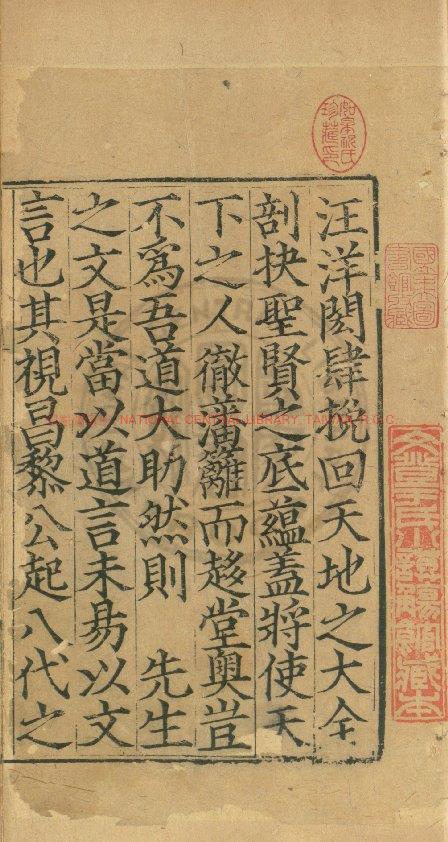 汪洋閎肆挽回天地之大全
剖抉聖賢之底蘊蓋將使天
下之人徹藩籬而趍堂奥豈
不爲吾道大助然則　先生
之文是當以道言未易以文
言也其視昌黎公起八代之
NATIONAL CENTRAL LIBRARY, TAIWAN, R.O.C.